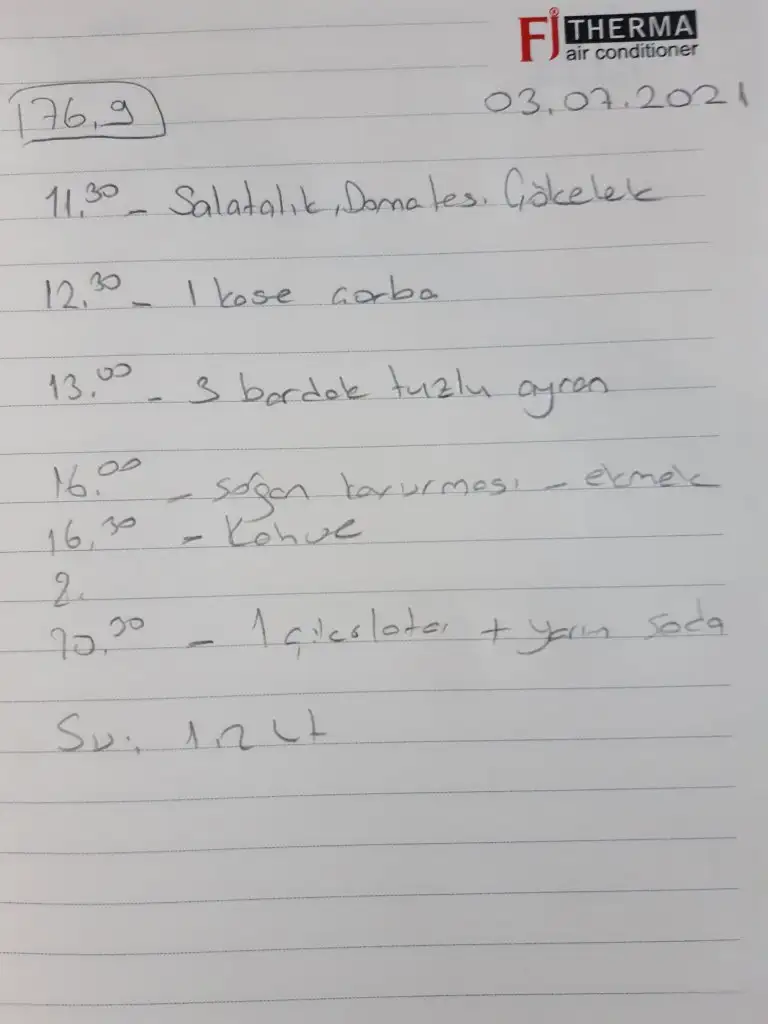 Fj THERMA
air conditioner
176,9
03.07.2021
11.30 - Salatalık, Domates. Çökelek
12.30 - 1 kase çorba
13.00 - 3 bardak tuzlu ayran
16.00 - soğan kavurması - ekmek
16.30 - Kahve
2.
20.30 - 1 çikolata + yarım soda
Su: 1.2 Lt